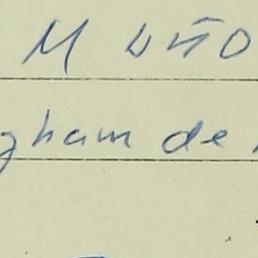 M UÑO
gham de